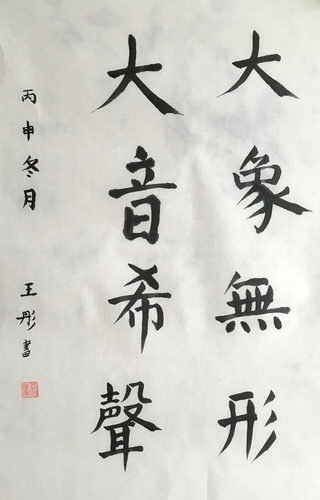 大象無形
大音希聲
丙申冬月 王彤書